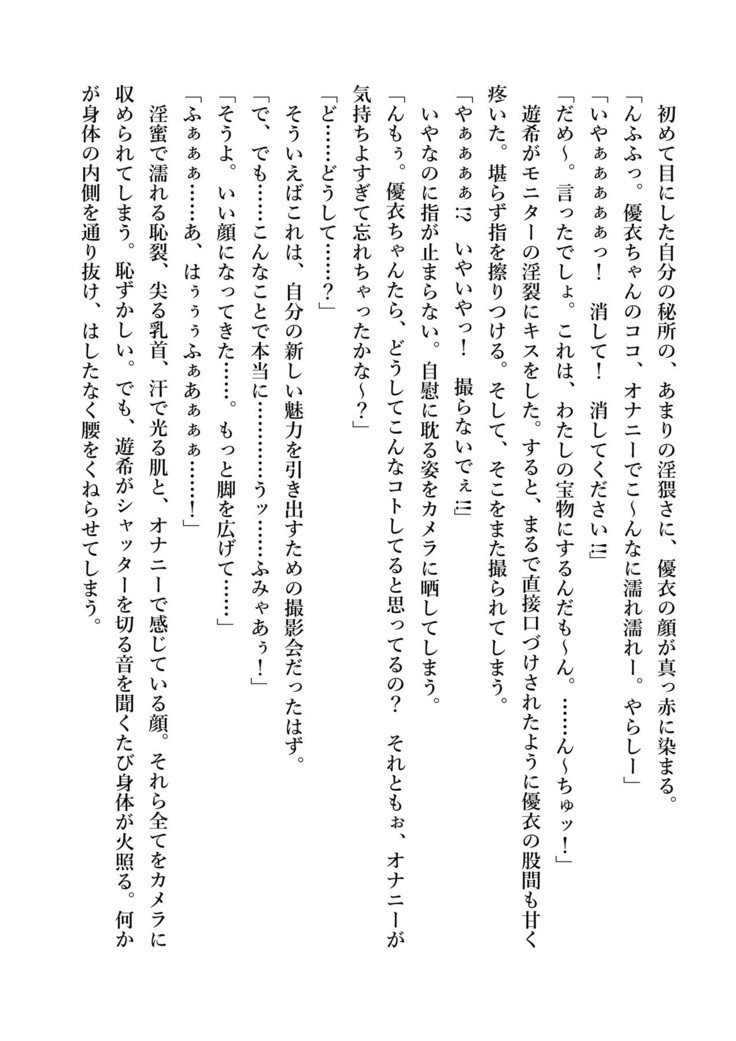 初めて目にした自分の秘所の、あまりの淫猥さに、優衣の顔が真っ赤に染まる。
「んふふっ。優衣ちゃんのココ、オナニーでこ〜んなに濡れ濡れー。やらしー」
「いやぁぁぁぁぁっ！　消して！　消してください!!」
「だめ〜。言ったでしょ。これは、わたしの宝物にするんだも〜ん。……ん〜ちゅッ！」
遊希がモニターの淫裂にキスをした。すると、まるで直接口づけされたように優衣の股間も甘く
疼いた。堪らず指を擦りつける。そして、そこをまた撮られてしまう。
「やぁぁぁぁ!?　いやいやっ！　撮らないでぇ!!」
いやなのに指が止まらない。自慰に耽る姿をカメラに晒してしまう。
「んもぅ。優衣ちゃんたら、どうしてこんなコトしてると思ってるの？　それともぉ、オナニーが
気持ちよすぎて忘れちゃったかな〜？」
「ど……どうして……？」
そういえばこれは、自分の新しい魅力を引き出すための撮影会だったはず。
「で、でも……こんなことで本当に…………うッ……ふみゃあぅ！」
「そうよ。いい顔になってきた……。もっと脚を広げて……」
「ふぁぁぁ……あ、はぅぅぅふぁあぁぁぁ……！」
淫蜜で濡れる恥裂、尖る乳首、汗で光る肌と、オナニーで感じている顔。それら全てをカメラに
収められてしまう。恥ずかしい。でも、遊希がシャッターを切る音を聞くたび身体が火照る。何か
が身体の内側を通り抜け、はしたなく腰をくねらせてしまう。